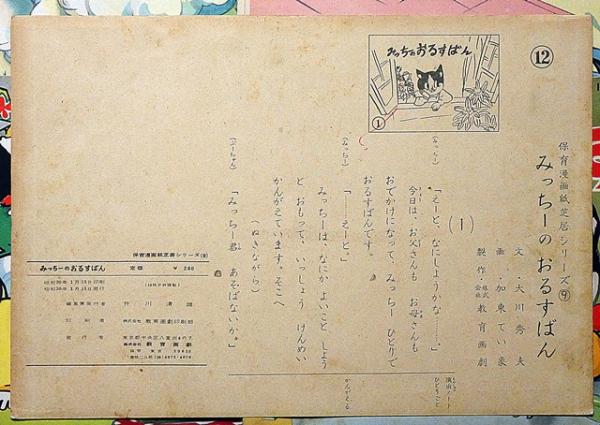 ⑫
みっちーのおるすばん
①
保育漫画紙芝居シリーズ⑨
みっちーのおるすばん
文・大川秀夫
画・加東てい象
製作・株式会社教育画劇
(1)
(みっちー)
「えーと、なにしようかな……。」
今日は、お父さんも お母さんも
おでかけになって、みっちー ひとりで
おるすばんです。
(みっちー)
「……えーと。」
みっちーは、なにか よいこと しよう
と おもって、いっしょう けんめい
かんがえています。そこへ
(ぬきながら)
「みっちー君、あそばないか。」
演出ノート
ひとりごと
かんがえる
保育漫画紙芝居シリーズ(9)
みっちーのおるすばん
定価 ¥280
編集兼発行者
印刷者
株式会社 教育画劇印刷部
発行者
株式会社 教育画劇